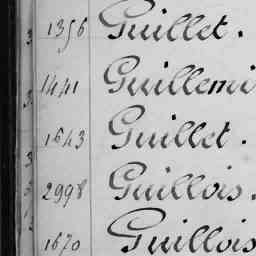 1356 Guillet.
1441 Guillemi
1643 Guillet.
2998 Guillois.
1670 Guillois